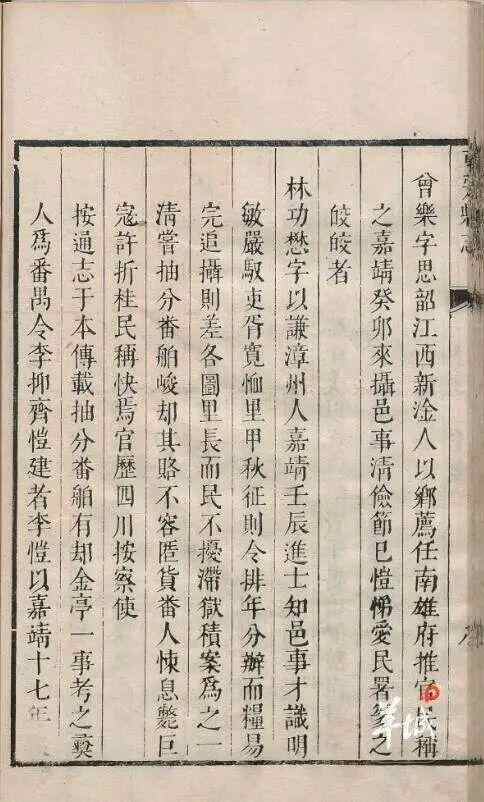 縣志
曾樂字思韶江西新淦人以鄉薦任南雄府推官民稱
之嘉靖癸卯來攝邑事清儉節已愷悌愛民署篆之
皎皎者
林功懋字以謙漳州人嘉靖壬辰進士知邑事才識明
敏嚴馭吏胥寬恤里甲秋征則令排年分辦而糧易
完追攝則差各圖里長而民不擾滯獄積案爲之一
清嘗抽分番舶峻却其賂不容匿貨番人悚息斃巨
寇許折桂民稱快焉官歷四川按察使
按通志于本傳載抽分番舶有却金亭一事考之寔
人爲番禺令李抑齊愷建者李愷以嘉靖十七年
羊城